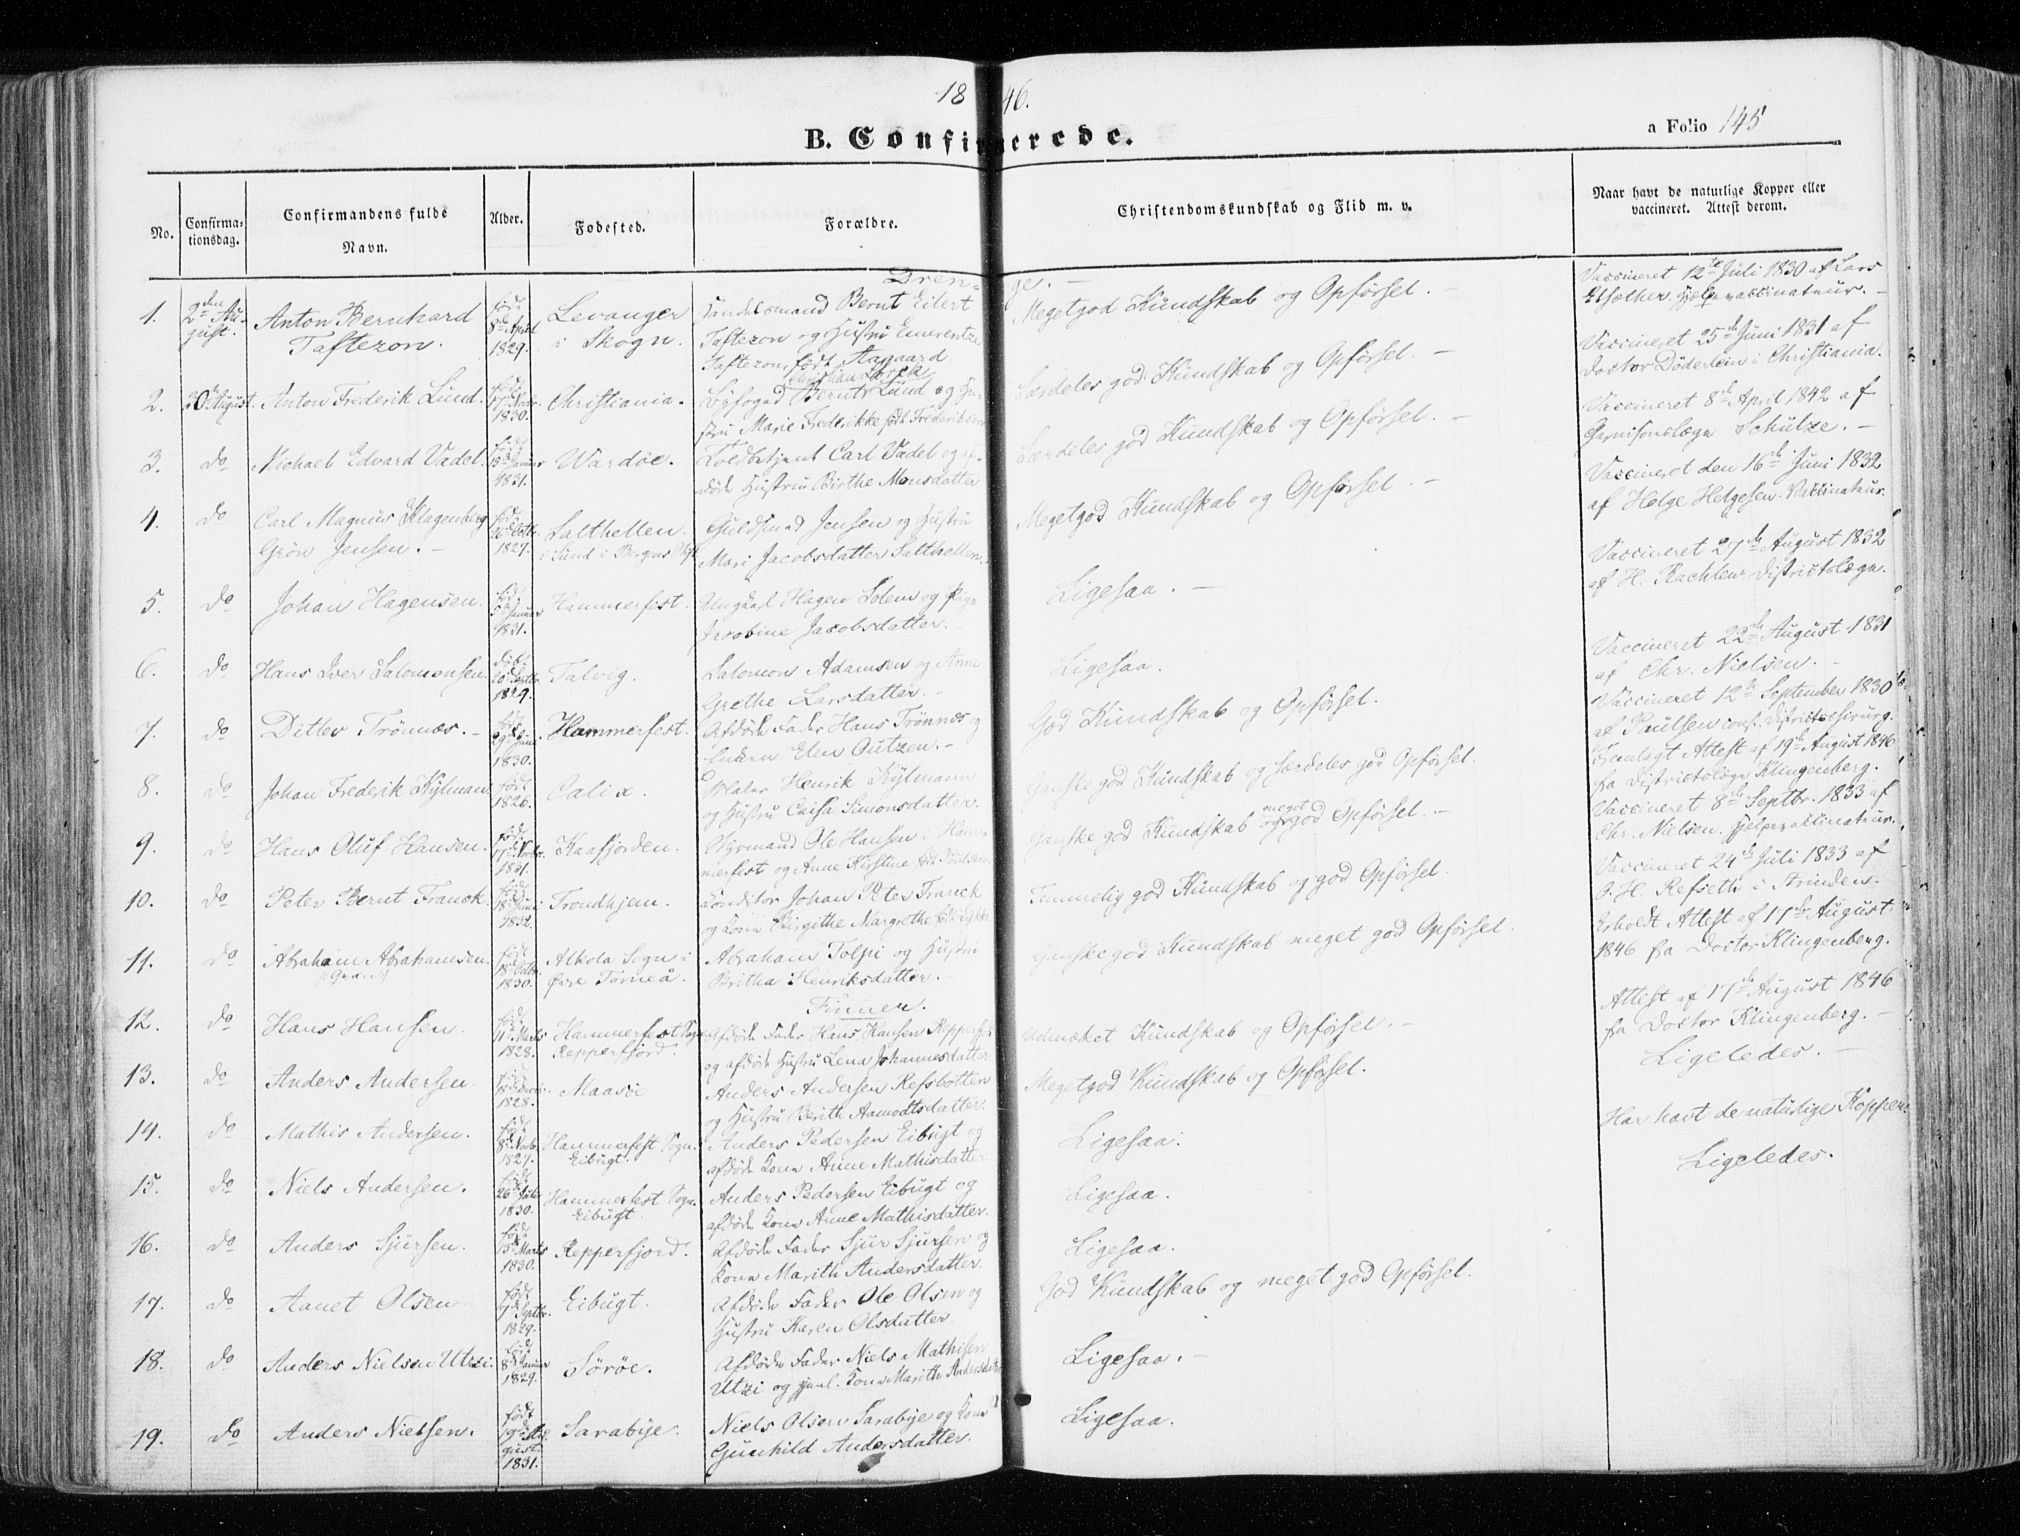 18 46.
B. Confirmerede.
a Folio 145
No.
Confirma-
tionsdag.
Confirmandens fulde
Navn.
Alder.
Fødested.
Forældre.
Christendomskundskab og Flid m. v.
Naar havt de naturlige Kopper eller
vaccineret. Attest derom.
Drenge. –
1. 2den Au-
gust. Anton Bernhard
Taftezon. født
8de April
1829. Levanger
i Skogn. Handelsmand Bernt Eilert
Taftezon og Hustru Emerentze
Taftezon, født Aagaard. Megetgod Kundskab og Opførsel. – Vaccineret 12te Juli 1830 af Lars
Hjelpevaccinateur. –
2. 30te August. Anton Frederik Lund. født
17de Novb.
1830. Christiania. Byfoged Bernt Lund og Hu-
stru Marie Frederikke født Frederiksen Særdeles god Kundskab og Opførsel. – Vaccineret 25de Juni 1831 af
Doctor Döderlein i Christiania.
3. do Michael Edvard Vadel. født
15de Januar
1821. Wardöe. Toldbetjent Carl Vadel og af-
døde Hustru Birthe Monsdatter Særdeles god Kundskab og Opførsel. – Vaccineret 8de April 1842 af
Garnisonslæge Schulze. –
4. do Carl Magnus Klagenberg
Grön Jensen. – født
1827. Salthellen
i Sund i Bergens Stift Guldsmed Jensen og Hustru
Mari Jacobsdatter Salthellen. Megetgod Kundskab og Opførsel. – Vaccineret den 16de Juni 1832
af Helge Helgesen. Vaccinateur.
5. do Johan Hagensen. født
5te Januar
1831. Hammerfest. Ungkarl Hagen Solem og Pige
Jacobine Jacobsdatter. – Ligesaa. – Vaccineret 27de August 1832
af H. Districtslæge.
6. do Hans Iver Salomonsen. døbt
1829. Talvig. Salomon Adamsen og Anne
Grethe Larsdatter. – Ligesaa. Vaccineret 22de August 1831
af Chr. Nielsen. –
7. do Ditlev Trönnæs. – født
29de Juni
1830. Hammerfest. Afdøde Fader Hans Trönnæs og
Enken Elen Outzen. – God Kundskab og Opførsel. Vaccineret 12te September 1830
af Paulsen const. Districtschirurg.
8. do Johan Frederik Kylman. født
1826. Calix. Maler Henrik Kylmann
og Hustru Caisa Simonsdatter. Ganske god Kundskab og særdeles god Opførsel. Fremlagt Attest af 19de August 1846
fra Districtslæge Klingenberg.
9. do Hans Oluf Hansen. født
17de Novbr.
1831. Kaafjorden. Ole Hansen i Ham-
merfest og Anne Kirstine født Ganske god Kundskab og meget god Opførsel. – Vaccineret 8de Septbr. 1833 af
Chr. Nielsen. Hjelpevaccinateur.
10. do Peter Bernt Franck. født
18de Juni
1832. Trondhjem. Conditor Johan Peter Franck
og Kone Birgithe Margrethe født Temmelig god Kundskab og god Opførsel. Vaccineret 24de Juli 1833 af
O. H. Refseth i Strinden.
11. do Abraham Abrahamsen.
(Qvæn) født
18de Octbr.
1830. Alkola Sogn i
Øvre Torneå. Abraham Tolpi og Hustru
Britha Henriksdatter. – Ganske god Kundskab meget god Opførsel. Erholdt Attest af 17de August
1846 fra Doctor Klingenberg.
Finner.
12. do Hans Hansen. født
11te Marts
1828. Hammerfest Sogn
Repperfjord. Afdøde Fader Hans Hansen Repperfjord
og afdøde Hustru Lena Johannesdatter Udmærket Kundskab og Opførsel. – Attest af 17de August 1846
fra Doctor Klingenberg. –
13. do Anders Andersen. født
1828. Maasöe Anders Andersen Refsbotten
og Hustru Berith Aamodtsdatter. Megetgod Kundskab og Opførsel. Ligeledes. –
14. do Mathis Andersen. født
8de Novb.
1827. Hammerfest Sogn.
Eibugt. Anders Pedersen Eibugt og
afdøde Kone Anne Mathisdatter. Ligesaa. Har havt de naturlige Kopper.
15. do Niels Andersen. født
26de Juli
1830. Hammerfest Sogn.
Eibugt. Anders Pedersen Eibugt og
afdøde Kone Anne Mathisdatter. Ligesaa. Ligeledes.
16. do Anders Sjursen. født
15de Marts
1830. Repperfjord. Afdøde Fader Sjur Sjursen og
Kone Marith Andersdatter. Ligesaa.
17. do Aanet Olsen født
7de Septbr.
1829. Eibugt. Afdøde Fader Ole Olsen og
Hustru Karen Olsdatter. God Kundskab og meget god Opførsel.
18. do Anders Nielsen Utzi. født
8de Januar
1829. Sörøe. Afdøde Fader Niels Mathisen
Utzi og gjenl. Kone Marith Andersdatter Ligesaa. –
19. do Anders Nielsen. født
19de Au-
gust.
1831. Sarabye. Niels Olsen Sarabye og Kone
Gunhild Andersdatter. Ligesaa.